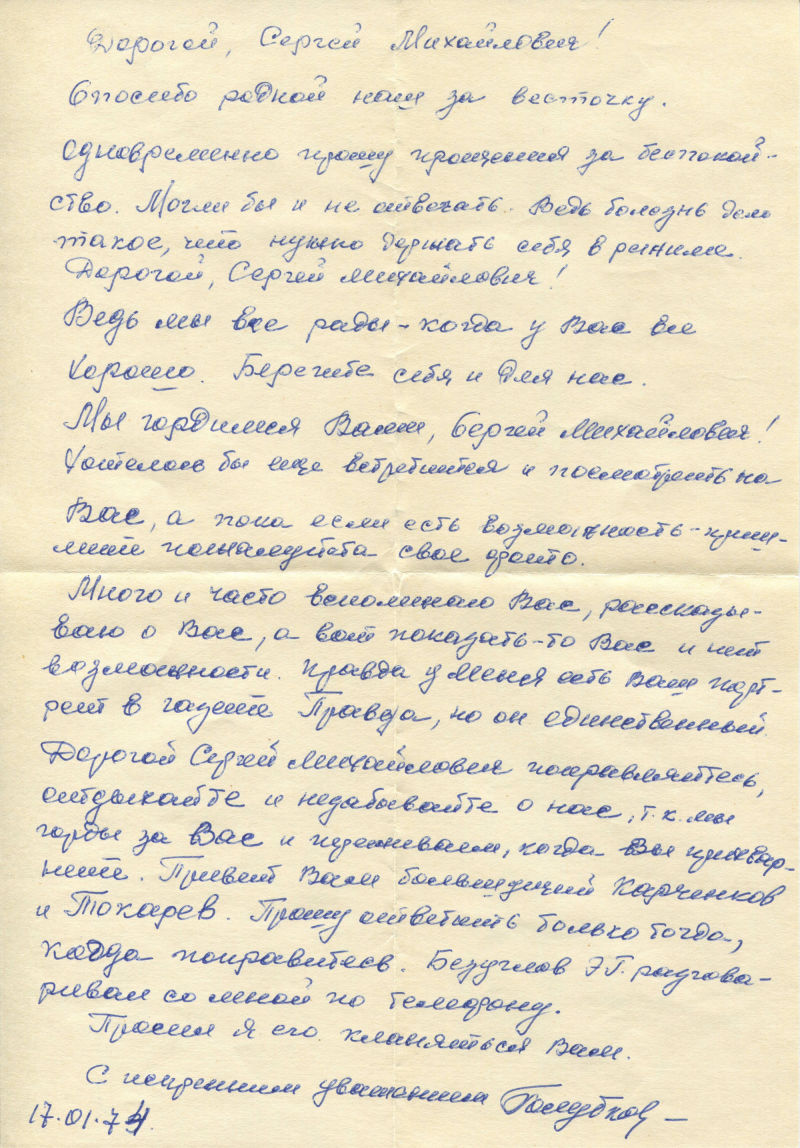 Дорогой, Сергей Михайлович!
Спосибо родной наш за весточку.
Одновременно прошу прощения за беспокой-
ство. Могли бы и не отвечать. Ведь болезнь дело
такое, что нужно держать себя в режиме.
Дорогой, Сергей Михайлович!
Ведь мы все рады - когда у Вас все
хорошо. Берегите себя и для нас.
Мы гордимся Вами, Сергей Михайлович!
Хотелось бы еще встретится и посмотреть на
Вас, а пока если есть возможность - приш-
лите пожалуйста свое фото.
Много и часто вспоминаю Вас, рассказы-
ваю о Вас, а вот показать-то Вас и нет
возможности. Правда у меня есть Ваш порт-
рет в газете Правда, но он единственный
Дорогой Сергей Михайлович поправляйтесь,
отдыхайте и незабывайте о нас, т.к. мы
горды за Вас и переживаем, когда Вы прихвар-
нете. Привет Вам
и Токарев. Прошу ответить только тогда,
когда поправитесь. Безуглов Э.Г. разгова-
ривал со мной по телефону.
Просил я его кланяться Вам.
С искренним уважением Голубков
17.01.74.